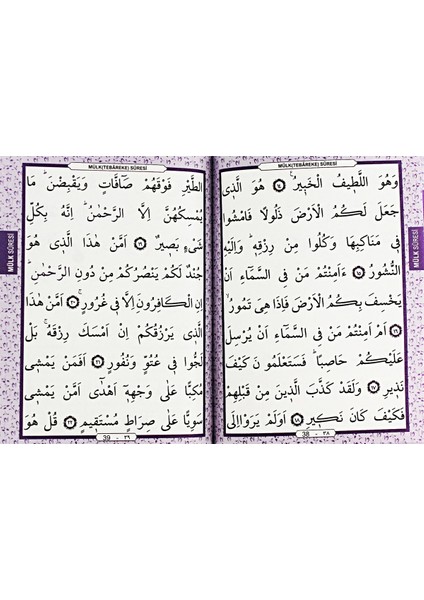 MÜLK(TEBÂREKE) SÛRESİ
وَهُوَ اللَّطٖيفُ الْخَبٖيرُ ۟ ﴿١٤﴾ هُوَ الَّذٖى
جَعَلَ لَكُمُ الْاَرْضَ ذَلُولًا فَامْشُوا
فٖى مَنَاكِبِهَا وَكُلُوا مِنْ رِزْقِهٖؕ وَاِلَيْهِ
النُّشُورُ ﴿١٥﴾ ءَاَمِنْتُمْ مَنْ فِى السَّمَٓاءِ اَنْ
يَخْسِفَ بِكُمُ الْاَرْضَ فَاِذَا هِىَ تَمُورُۙ
﴿١٦﴾ اَمْ اَمِنْتُمْ مَنْ فِى السَّمَٓاءِ اَنْ يُرْسِلَ
عَلَيْكُمْ حَاصِبًاؕ فَسَتَعْلَمُونَ كَيْفَ
نَذٖيرِ ﴿١٧﴾ وَلَقَدْ كَذَّبَ الَّذٖينَ مِنْ قَبْلِهِمْ
فَكَيْفَ كَانَ نَكٖيرِ ﴿١٨﴾ اَوَلَمْ يَرَوْا اِلَى
38 - ٣٨
MÜLK SÛRESİ
MÜLK(TEBÂREKE) SÛRESİ
الطَّيْرِ فَوْقَهُمْ صَٓافَّاتٍ وَيَقْبِضْنَؕ مَا
يُمْسِكُهُنَّ اِلَّا الرَّحْمٰنُؕ اِنَّهُ بِكُلِّ
شَىْءٍ بَصٖيرٌ ﴿١٩﴾ اَمَّنْ هٰذَا الَّذٖى هُوَ
جُنْدٌ لَكُمْ يَنْصُرُكُمْ مِنْ دُونِ الرَّحْمٰنِؕ
اِنِ الْكَافِرُونَ اِلَّا فٖى غُرُورٍۚ ﴿٢٠﴾ اَمَّنْ هٰذَا
الَّذٖى يَرْزُقُكُمْ اِنْ اَمْسَكَ رِزْقَهُۚ بَلْ
لَجُّوا فٖى عُتُوٍّ وَنُفُورٍ ﴿٢١﴾ اَفَمَنْ يَمْشٖى
مُكِبًّا عَلٰى وَجْهِهٖٓ اَهْدٰٓى اَمَّنْ يَمْشٖى
سَوِيًّا عَلٰى صِرَاطٍ مُسْتَقٖيمٍ ﴿٢٢﴾ قُلْ هُوَ
39 - ٣٩
MÜLK SÛRESİ